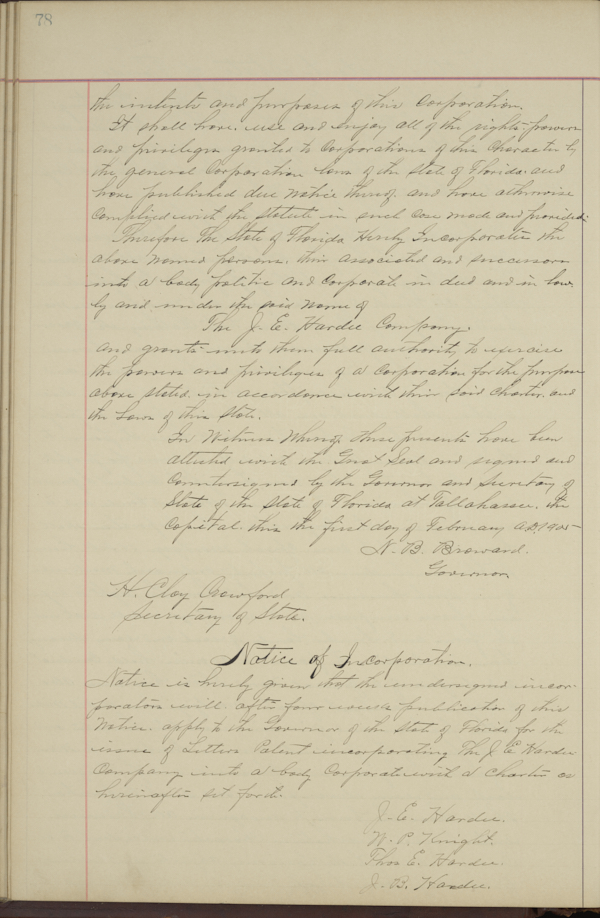 78
the intents and purposes of this Corporation.
It shall have, use and enjoy all of the rights, powers
and privileges granted to Corporations of this Character by
the general Corporation laws of the State of Florida and
have published due notice thereof and have otherwise
Complied with the Statute in such case made and provided:
Therefore The State of Florida Hereby Incorporates the
above named persons, their associates and successors
into a body politic and Corporate in deed and in law
by and under the said name of
The J. E. Hardee Company.
and grants unto them full authority to exercise
the powers and privileges of a Corporation for the purpose
above stated in accordance with their said Charter and
the Laws of this State.
In Witness Whereof these presents have been
attested with the Great Seal and signed and
Countersigned by the Governor and Secretary of
State of the State of Florida at Tallahassee, the
Capital this the first day of February A.D. 1905
N. B. Broward.
Governor
H. Clay Crawford
Secretary of State.
Notice of Incorporation.
Notice is hereby given that the undersigned incor-
porators will after four weeks publication of this
Notice, apply to the Governor of the State of Florida for the
issue of Letters Patent incorporating The J. E. Hardee
Company into a body Corporate with a Charter as
hereinafter set forth.
J. E. Hardee.
W. P. Knight.
Thos E. Hardee.
J. B. Hardee.